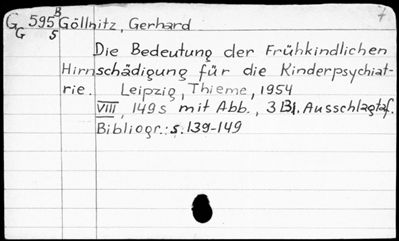 G 595 B Göllnitz, Gerhard
G 5
Die Bedeutung der Frühkindlichen
Hirnschädigung für die Kinderpsychiat-
rie. Leipzig, Thieme, 1954
VIII, 149 s mit Abb., 3 Bl. Ausschlagtaf.
Bibliogr.: s. 139-149